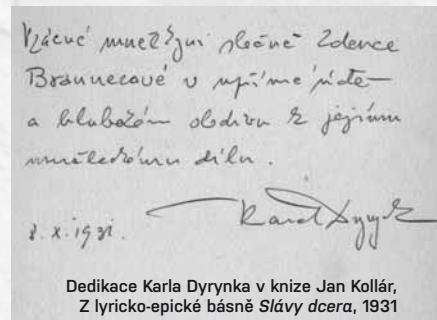 Vzácné umělkyni slečně Zdence
Braunerové v upřímné úctě
a hlubokém obdivu k jejímu
uměleckému dílu.
8. X. 1931.
Karel Dyrynk
Dedikace Karla Dyrynka v knize Jan Kollár,
Z lyricko-epické básně Slávy dcera, 1931